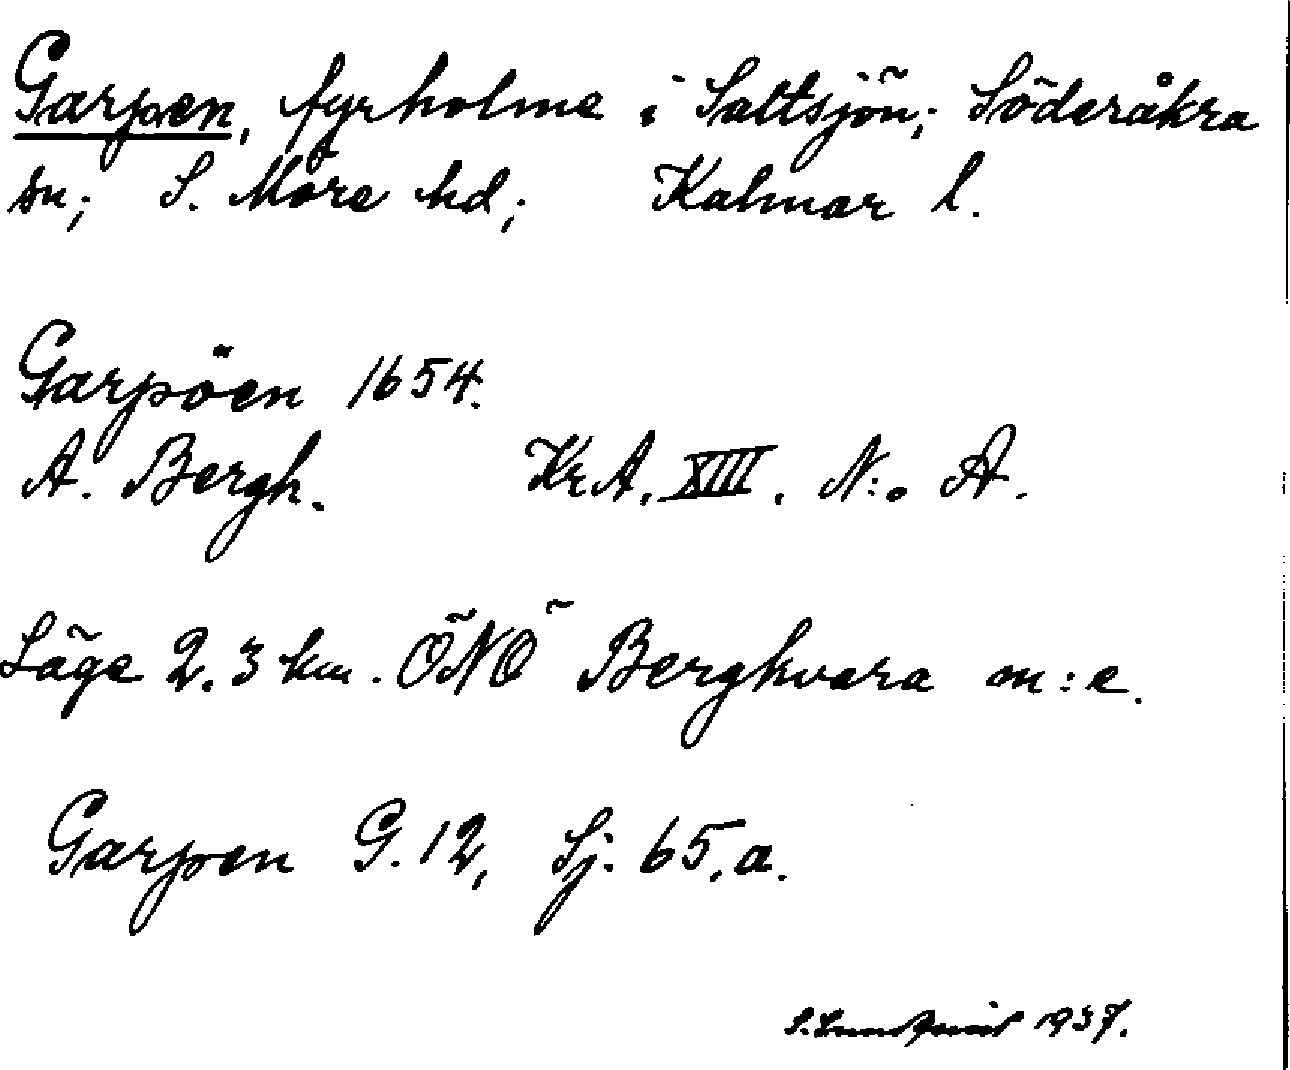 Garpen, fyrholme i Saltsjön; Söderåkra
sn; S. Möre hd; Kalmar l.
Garpöen 1654.
A. Bergh. KrA. XIII. N:o A.
Läge 2.3 km. ÖNÖ Bergkvara m:e.
Garpen G.12, Sj. 65.a.
S. Lundqvist 1937.